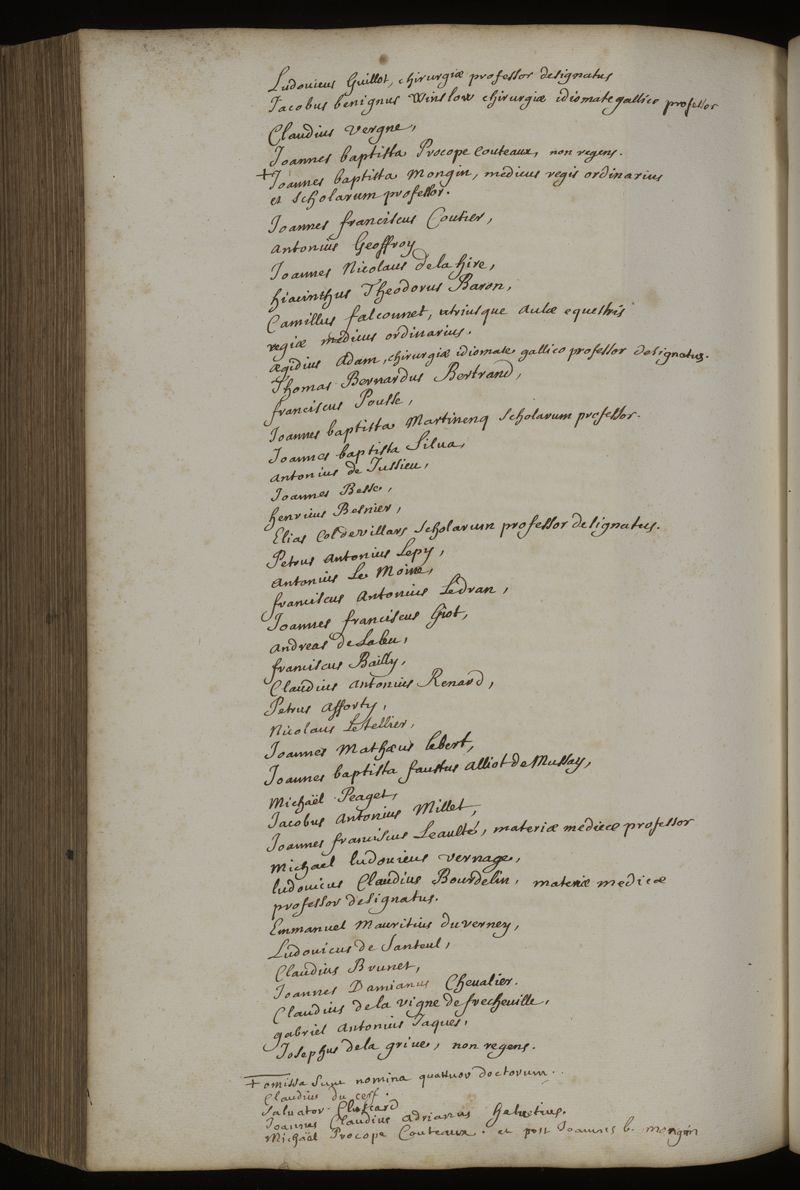 Ludovicus Guillot, chirurgiæ professor designatus
Jacobus benignus Winslow chirurgiæ idiomate gallico professor
Claudius Vergne,
Joannes baptista Procope Couteaux, non regens.
+ Joannes baptista Mongin, medicus regis ordinarius
et scholarum professor.
Joannes franciscus Coutier,
Antonius Geoffroy
Joannes Nicolaus de la hire,
hiacinthus Theodorus Baron,
Camillus falconnet, utriusque aulæ equestris
regiæ medicus ordinarius.
Ægidius Adam, chirurgiæ idiomate gallico professor designatus.
Thomas Bernardus Bertrand,
franciscus Pousse,
Joannes baptista Martinenq scholarum professor.
Joannes baptista Silva,
Antonius de Jussieu,
Joannes Besse,
henricus Besnier,
Elias Coldevillars scholarum professor designatus.
Petrus Antonius Lepy,
Antonius Le Moine,
franciscus Antonius Ledran,
Joannes franciscus Giot,
Andreas de Laleu,
franciscus Bailly,
Claudius Antonius Renard,
Petrus Afforty,
Nicolaus Letellier,
Joannes Mathæus lebert,
Joannes baptista faustus Alliot de Mussay,
Michaël Peaget,
Jacobus Antonius Millet,
Joannes franciscus Leaulté, materiæ medicæ professor
Michael ludovicus Vernage,
ludovicus Claudius Bourdelin, materiæ medicæ
professor designatus.
Emmanuel Mauritius duverney,
Ludovicus de Santeul,
Claudius Brunet,
Joannes Damianus Chevalier.
Claudius de la vigne de frecheville,
gabriel Antonius Jaques,
Josephus de la grive, non regens.
+ omissa sunt nomina quattuor doctorum.
Claudius du cerf.
Salvator
Joannes Claudius Adrianus helvetius.
Michaël Procope Couteaux. et post Joannes b. mongin